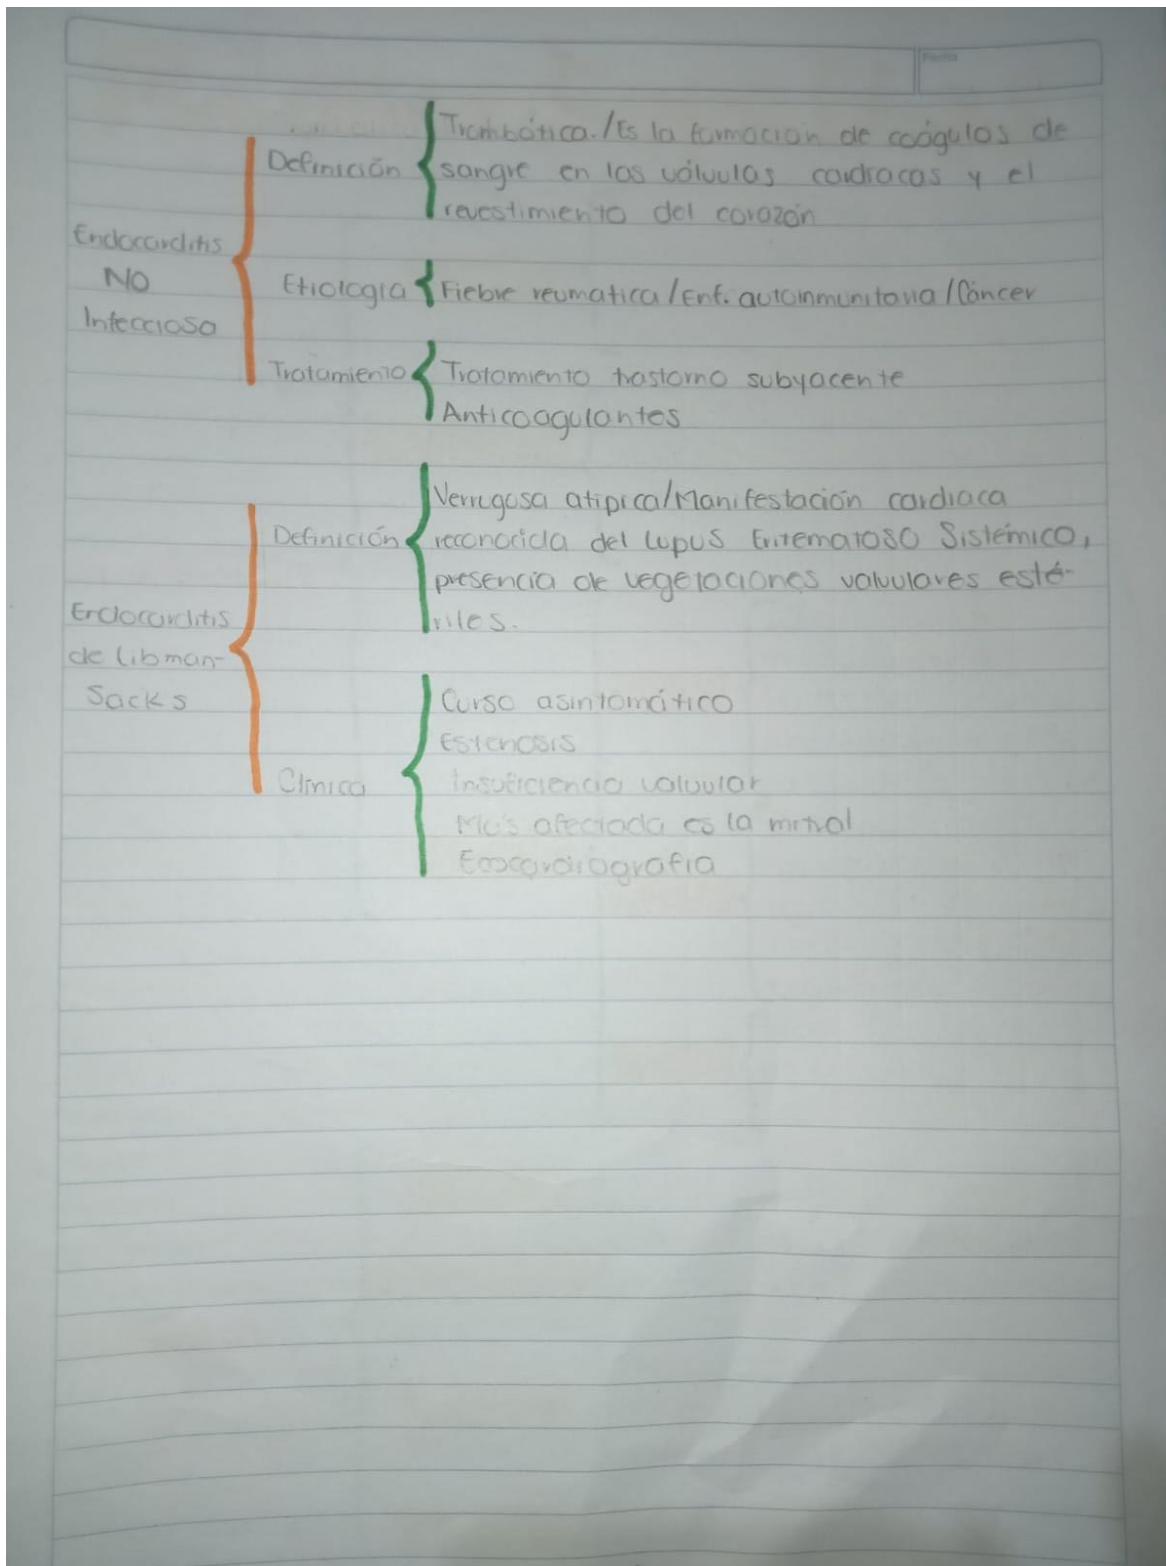 Fecha
Definición
Trombótica./Es la formación de coágulos de
sangre en las válvulas cardiacas y el
revestimiento del corazón
Endocarditis
NO
Infecciosa
Etiología
Fiebre reumatica/Enf. autoinmunitaria/Cáncer
Tratamiento
Tratamiento trastorno subyacente
Anticoagulantes
Endocarditis
de Libman-
Sacks
Definición
Verrugosa atipica/Manifestación cardiaca
reconocida del Lupus Eritematoso Sistémico,
presencia de vegetaciones valvulares esté-
riles.
Clínica
Curso asintomático
Estenosis
Insuficiencia valvular
Más afectada es la mitral
Ecocardiografia